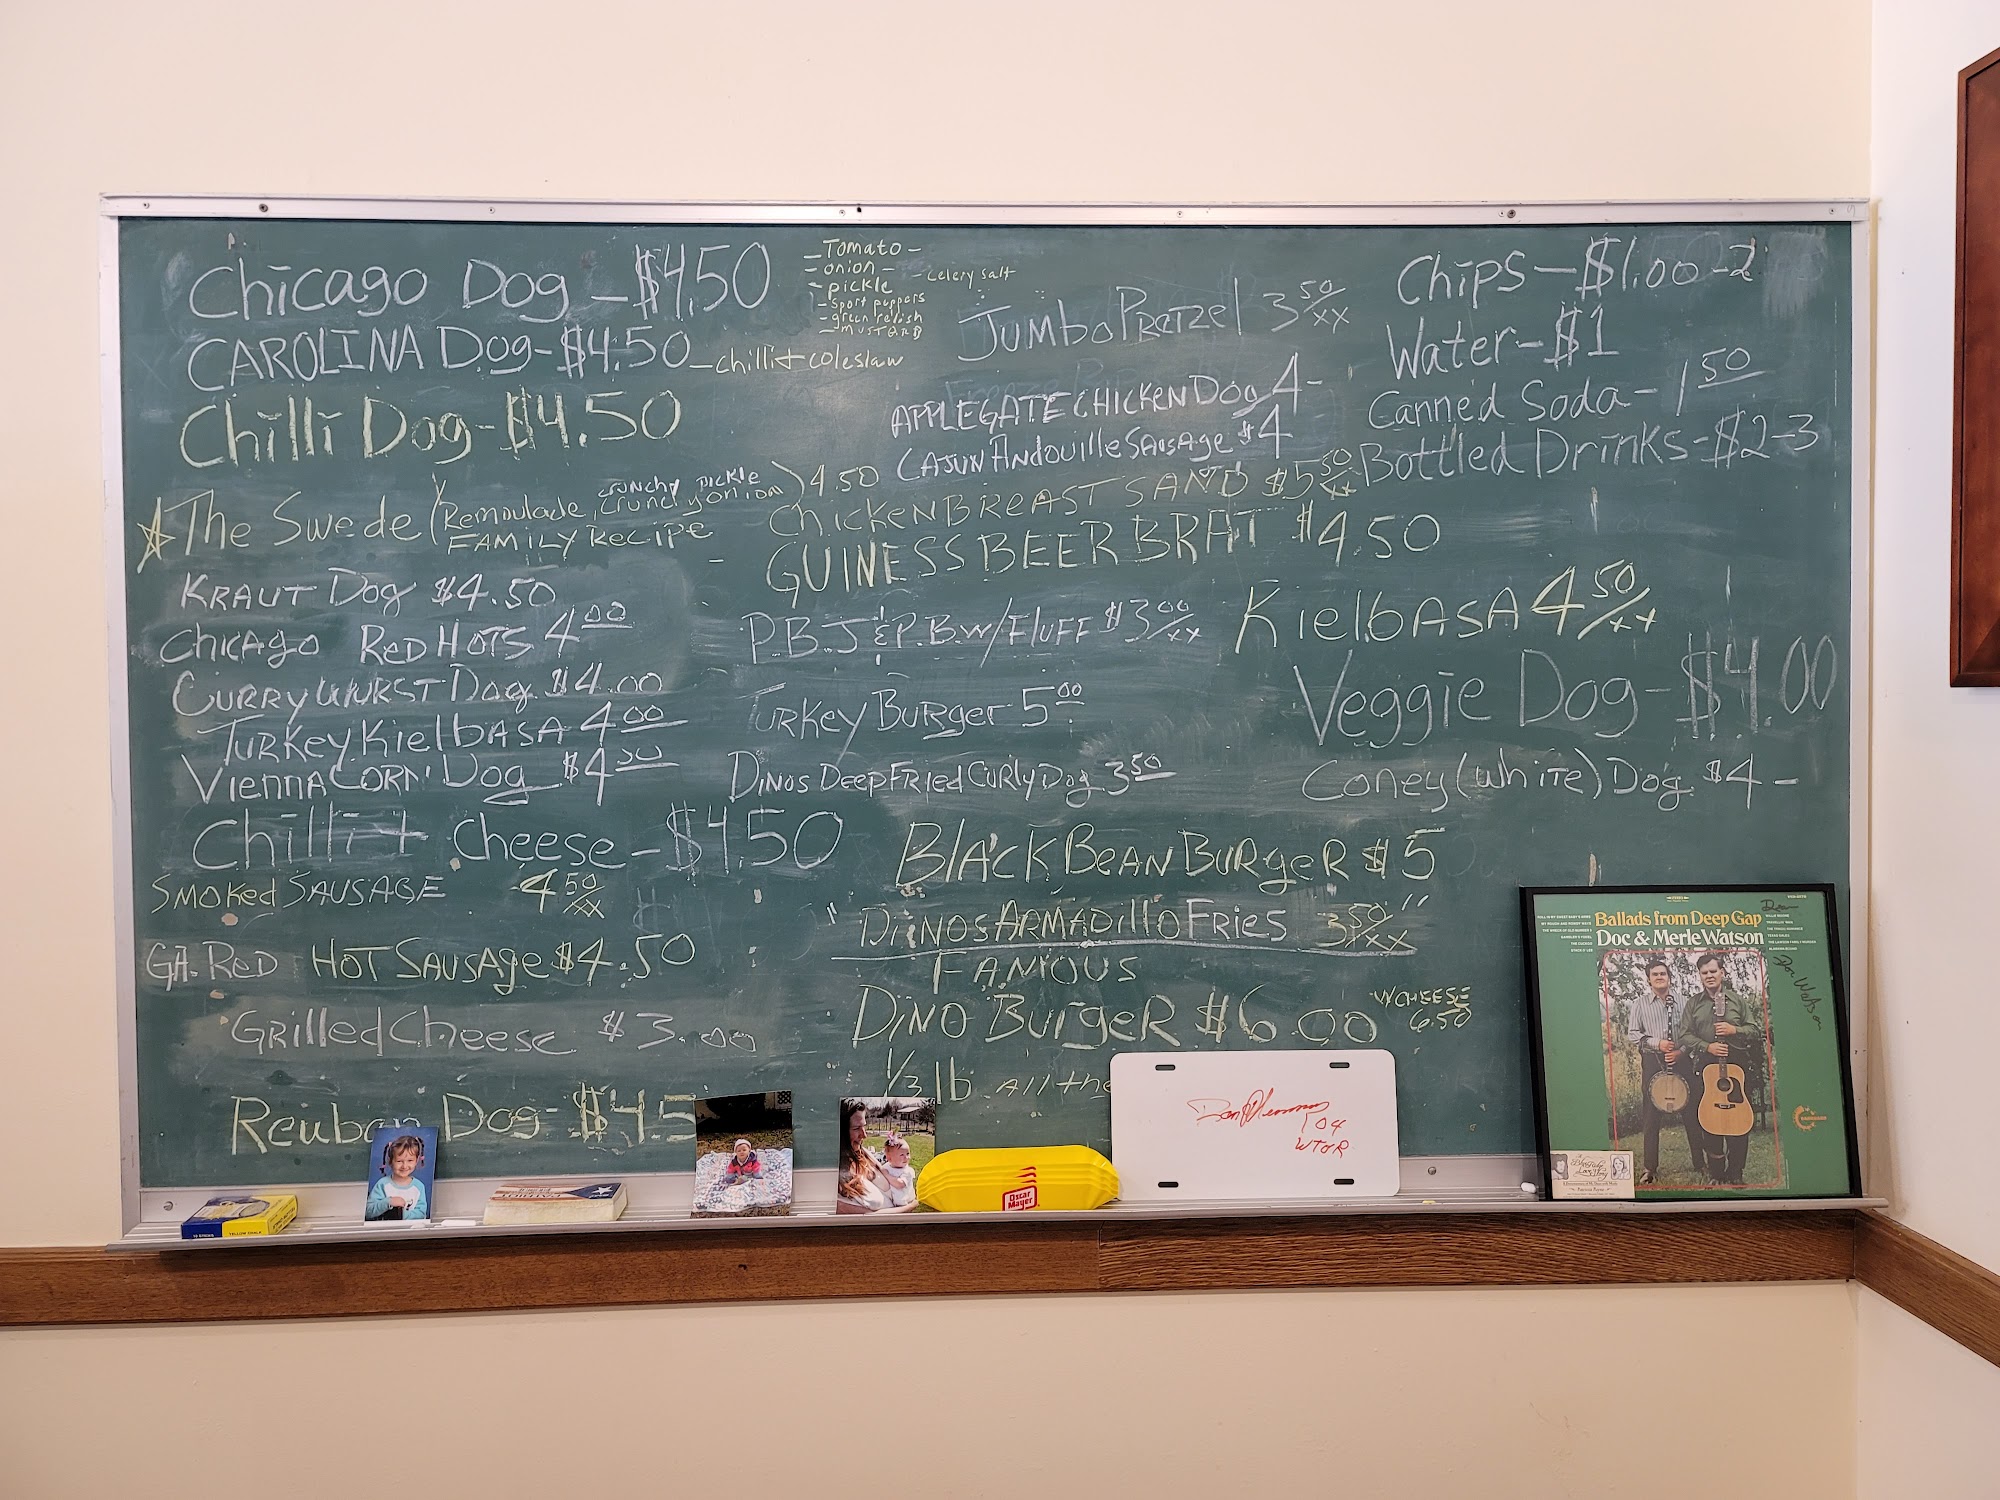 Chicago Dog - $4.50
- Tomato -
- onion -
- celery salt
- pickle
- sport peppers
- green relish
- MUSTARD
CAROLINA Dog - $4.50 - chilli + coleslaw
Chilli Dog - $4.50
The Swede (Remoulade, crunchy pickle
crunchy onion) 4.50
FAMILY RECIPE
KRAUT Dog $4.50
Chicago Red HOTS 4.00
CURRYWURST Dog $4.00
TURKEY Kielbasa 4.00
Vienna CORN Dog $4.50
Chilli + cheese - $4.50
SMOKED SAUSAGE 4 50/xx
GA. Red HOT SAUSAge $4.50
GRilled Cheese $3.00
Reuban Dog - $4.5
Jumbo PRetzel 3 50/xx
APPLEGATE CHICKEN Dog 4-
CAJUN ANDouille SAusage $4
ChickEN BREAST SAND $5 50/xx
GUINESS BEER BRAT $4.50
P.B.J & P.B. w/ Fluff $3 00/xx
TURKey BuRgeR 5.00
DINOS Deep FRied CuRly Dog 3.50
BlacK BeAN BURgeR $5
"DiNOS ARMADillo FRies 3 50/xx"
FAMOUS
DiNO BuRgeR $6.00 W CHEESE
6.50
1/3 lb. All the
Chips - $1.00-2
Water - $1
Canned Soda - 1.50
Bottled Drinks - $2-3
Kielbasa 4 50/xx
Veggie Dog - $4.00
Coney (white) Dog $4 -
Ballads from Deep Gap
Doc & Merle Watson
Doc Watson
Oscar
Mayer
'04
YELLOW CHALK